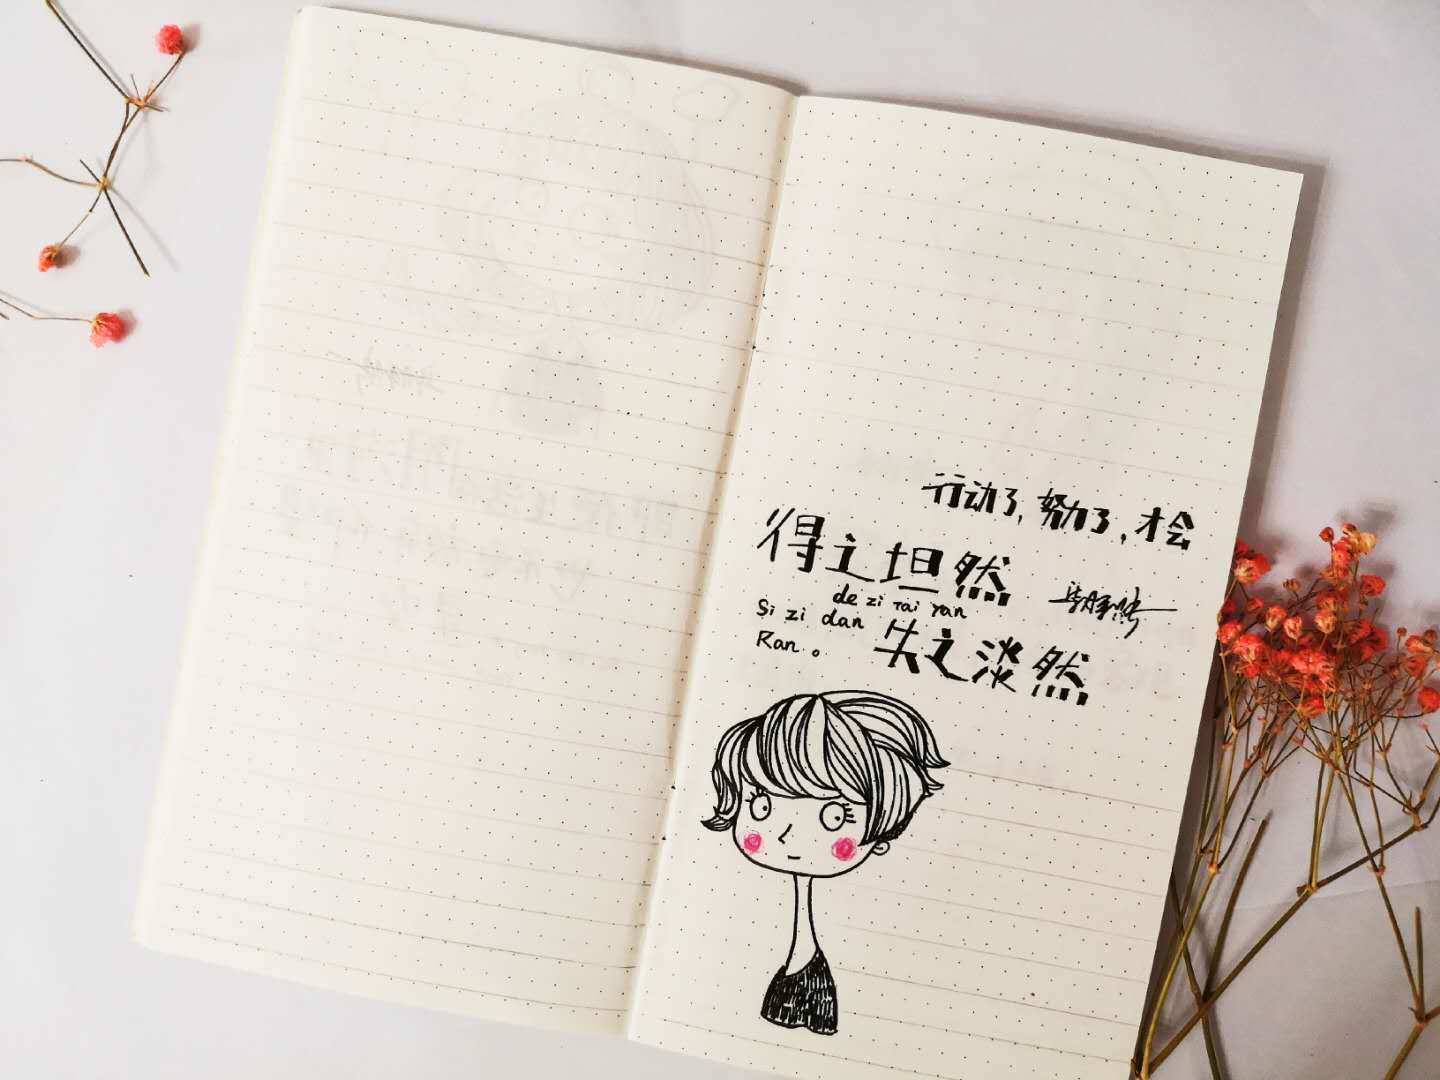 行动了,努力了,才会
得之坦然
de zi Tai ran
Si zi dan
Ran。
失之淡然